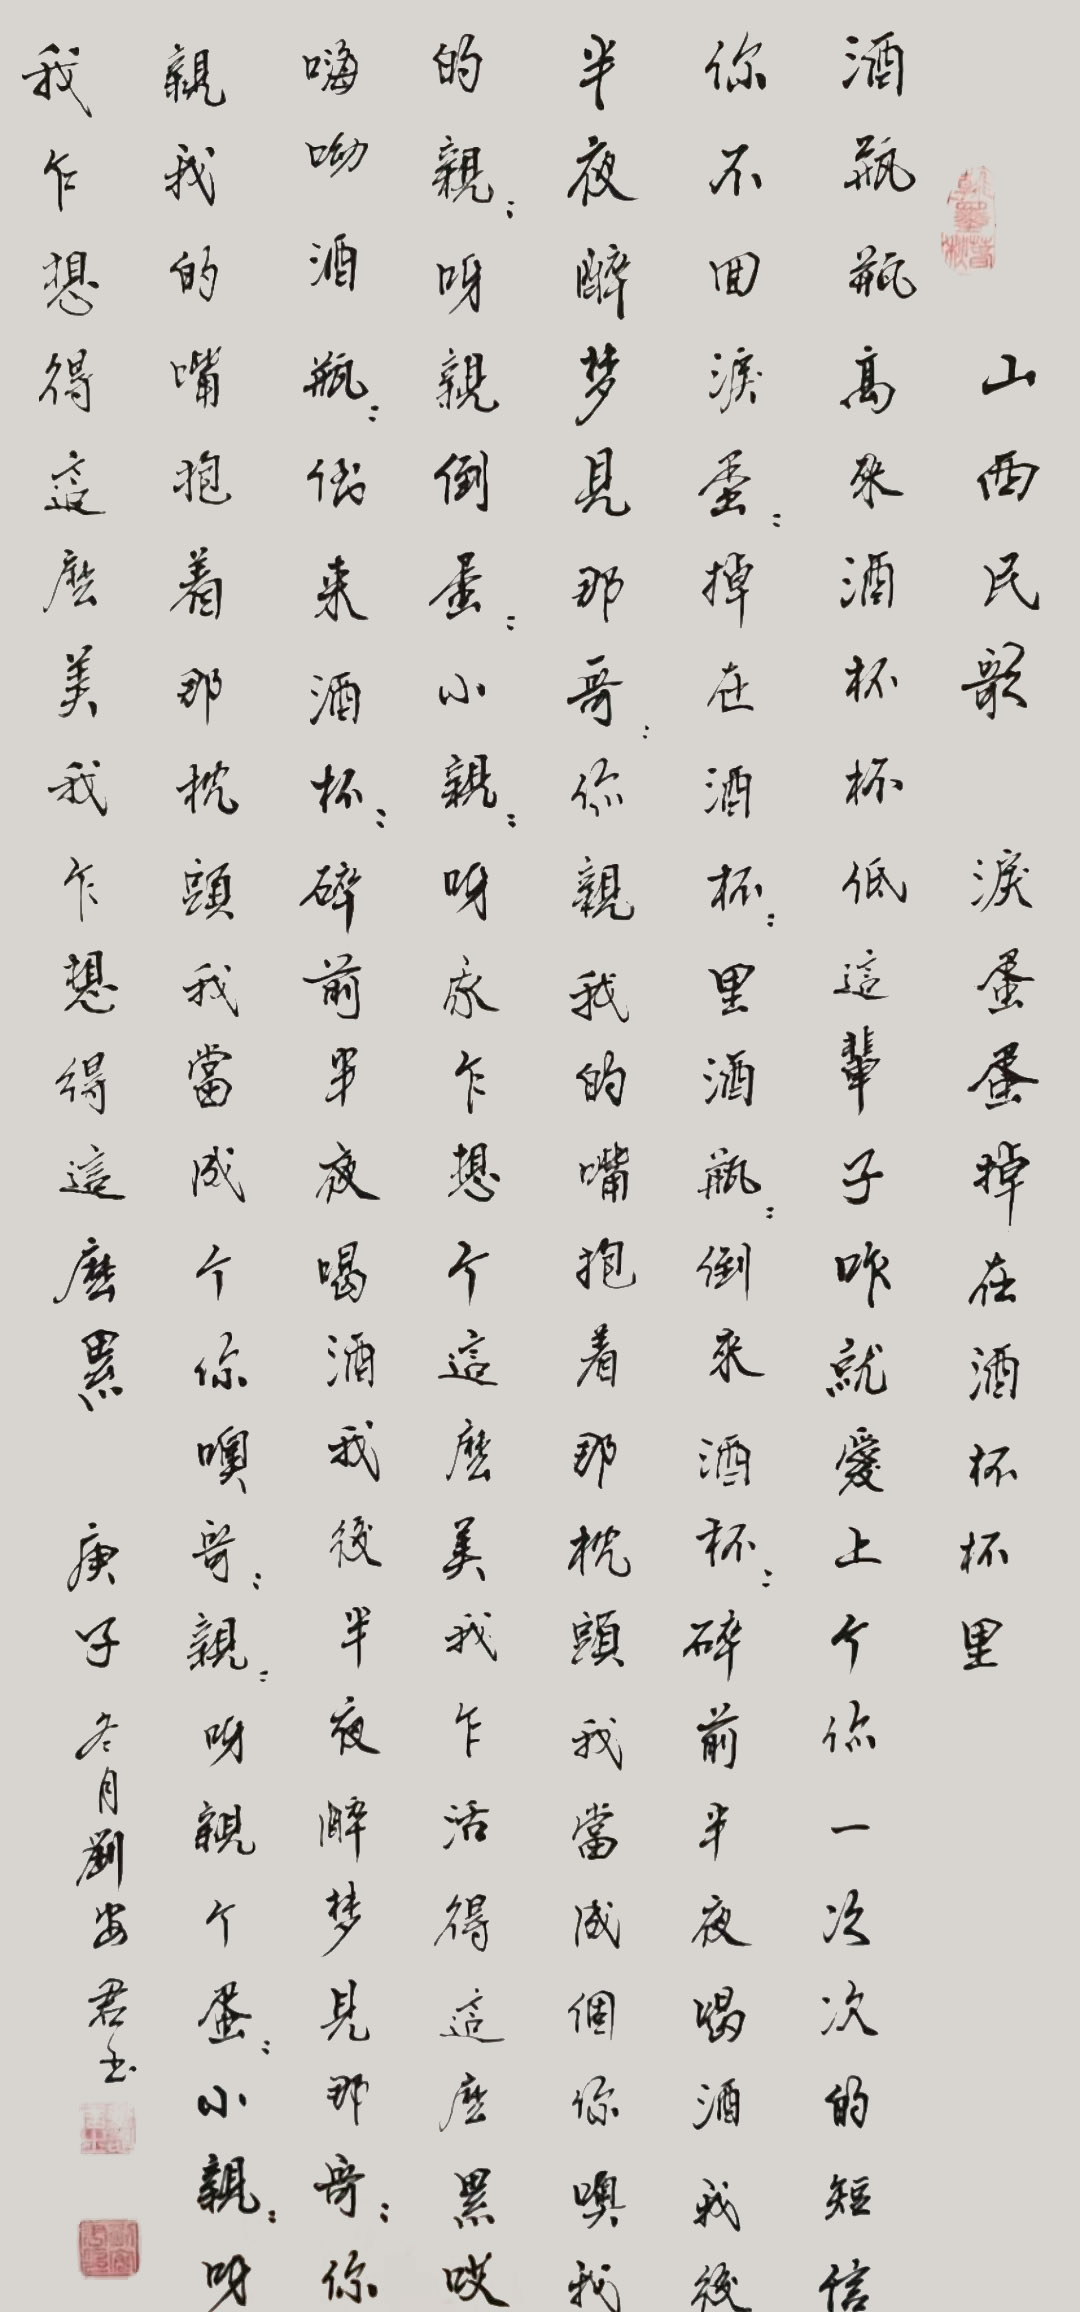 山西民歌 淚蛋蛋掉在酒杯杯里
酒瓶瓶高來酒杯杯低這輩子咋就愛上个你一次次的短信
你不回淚蛋:掉在酒杯:里酒瓶:倒來酒杯:碎前半夜喝酒我後
半夜醉梦見那哥:你親我的嘴抱着那枕頭我當成個你噢我
的親:呀親倒蛋:小親:呀我乍想个這麽美我乍活得這麽累哎
嗨呦酒瓶:倒来酒杯:碎前半夜喝酒我後半夜醉梦見那哥:你
親我的嘴抱着那枕頭我當成个你噢哥:親:呀親个蛋:小親:呀
我乍想得這麽美我乍想得這麽累 庚子冬月劉安君书